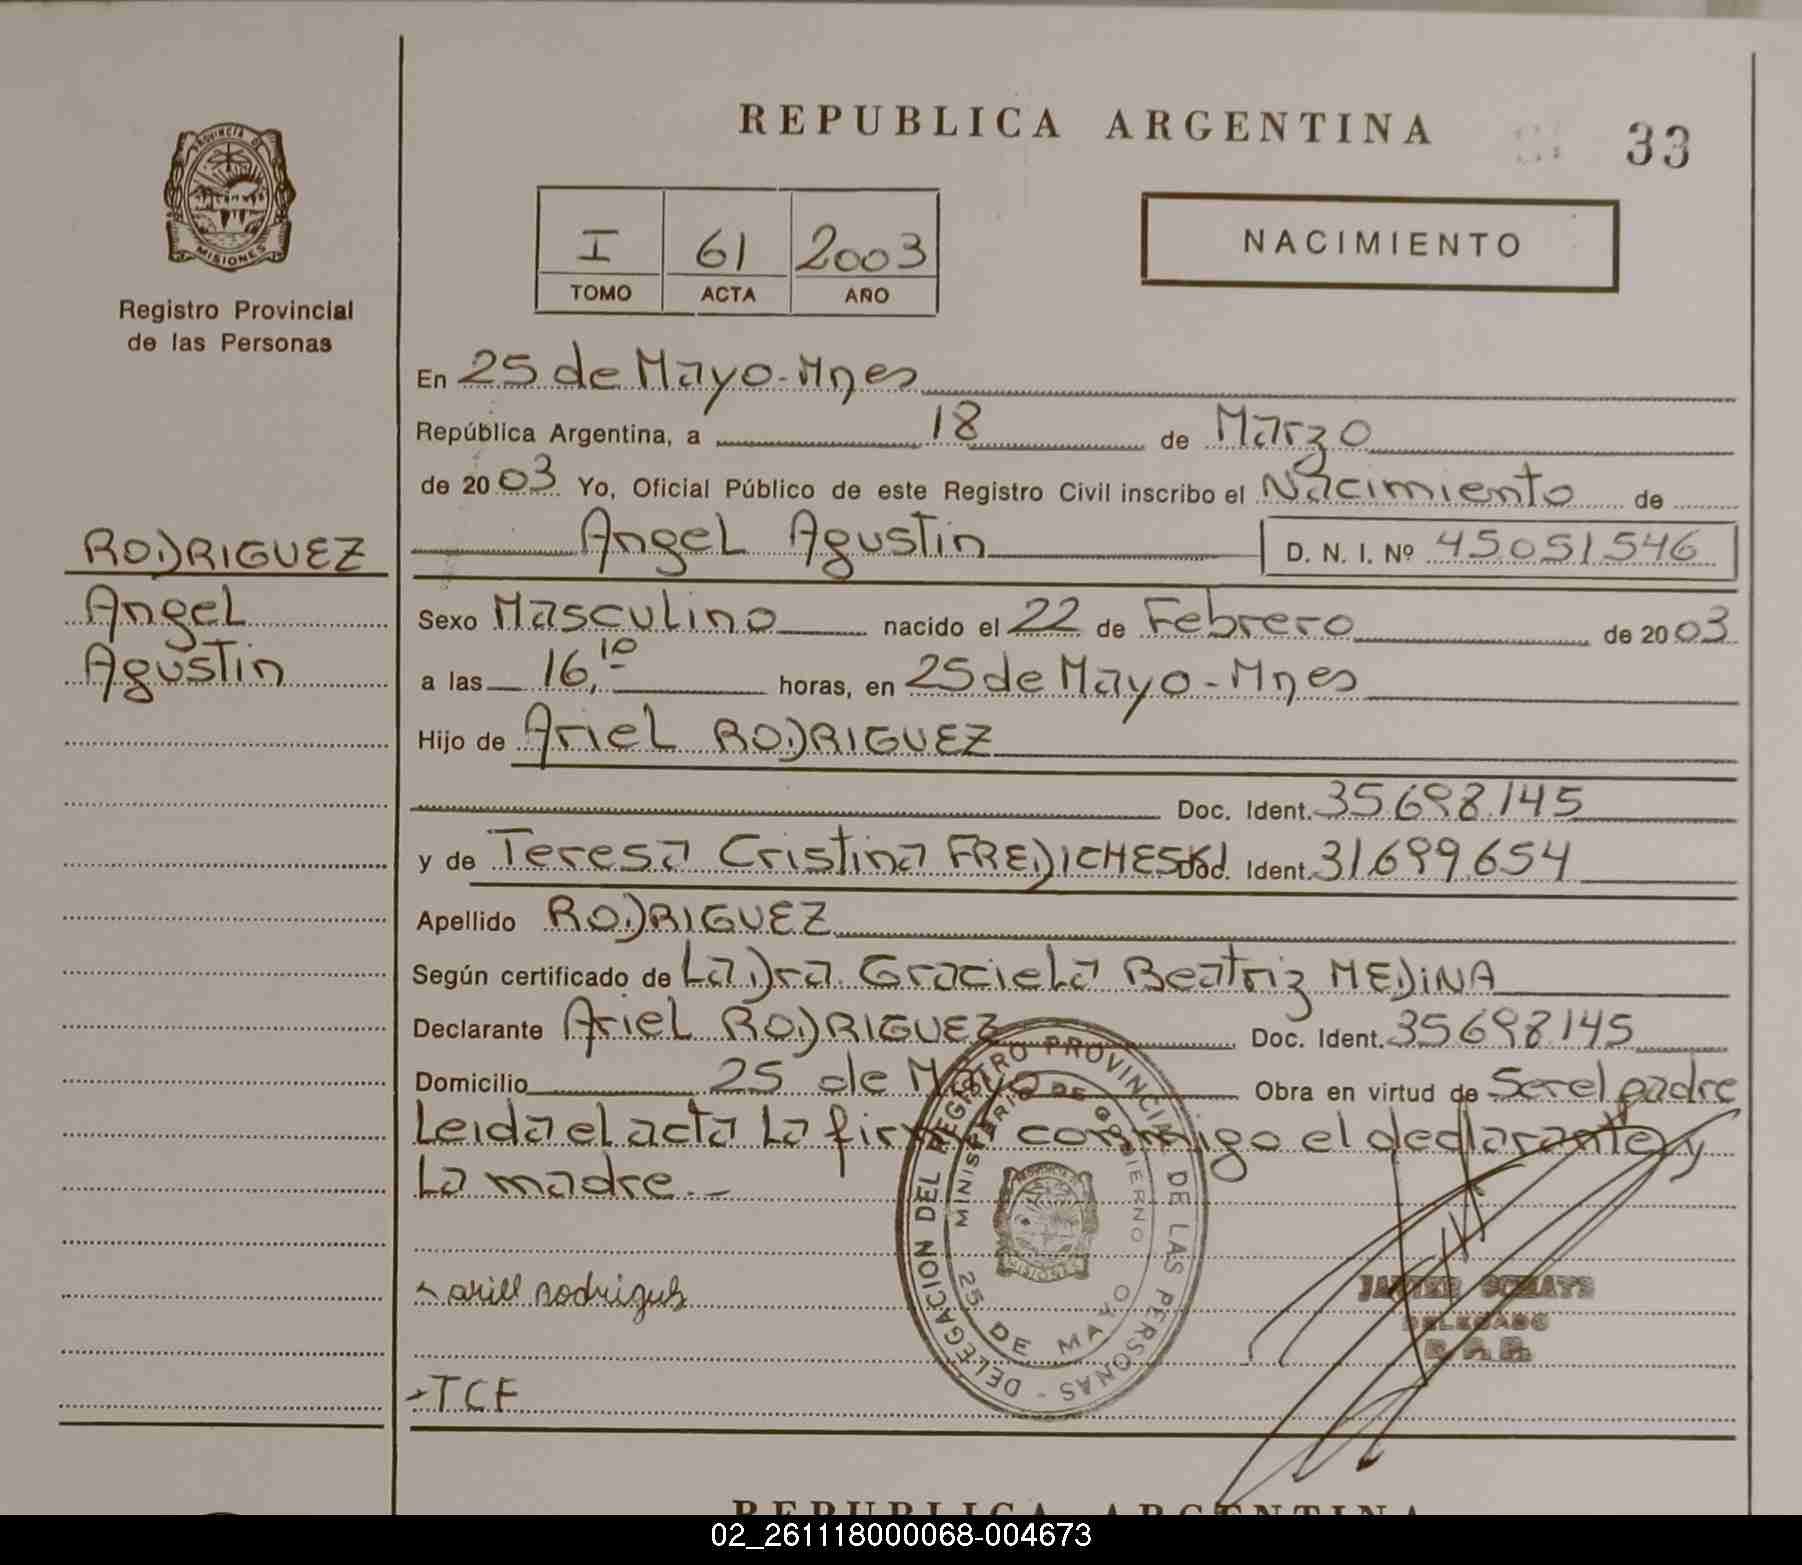 REPUBLICA ARGENTINA
33
PROVINCIA DE
MISIONES
Registro Provincial
de las Personas
I 61 2003
TOMO ACTA AÑO
NACIMIENTO
En 25 de Mayo-Mnes
República Argentina, a 18 de Marzo
de 2003 Yo, Oficial Público de este Registro Civil inscribo el Nacimiento de
RODRIGUEZ
Angel
Agustin
Angel Agustin D. N. I. Nº 45051546
Sexo Masculino nacido el 22 de Febrero de 2003
a las 16,10 horas, en 25 de Mayo-Mnes
Hijo de Ariel RODRIGUEZ
Doc. Ident. 35698145
y de Teresa Cristina FREDICHESKI Doc. Ident. 31699654
Apellido RODRIGUEZ
Según certificado de La Dra. Graciela Beatriz MEDINA
Declarante Ariel RODRIGUEZ Doc. Ident. 35698145
Domicilio 25 de Mayo Obra en virtud de Ser el padre
Leida el acta la firman conmigo el declarante y
La madre.-
DELEGACION DEL REGISTRO PROVINCIAL DE LAS PERSONAS -
MINISTERIO DE GOBIERNO
MISIONES
25 DE MAYO
TCF
DELEGADO
REPUBLICA ARGENTINA
02_261118000068-004673